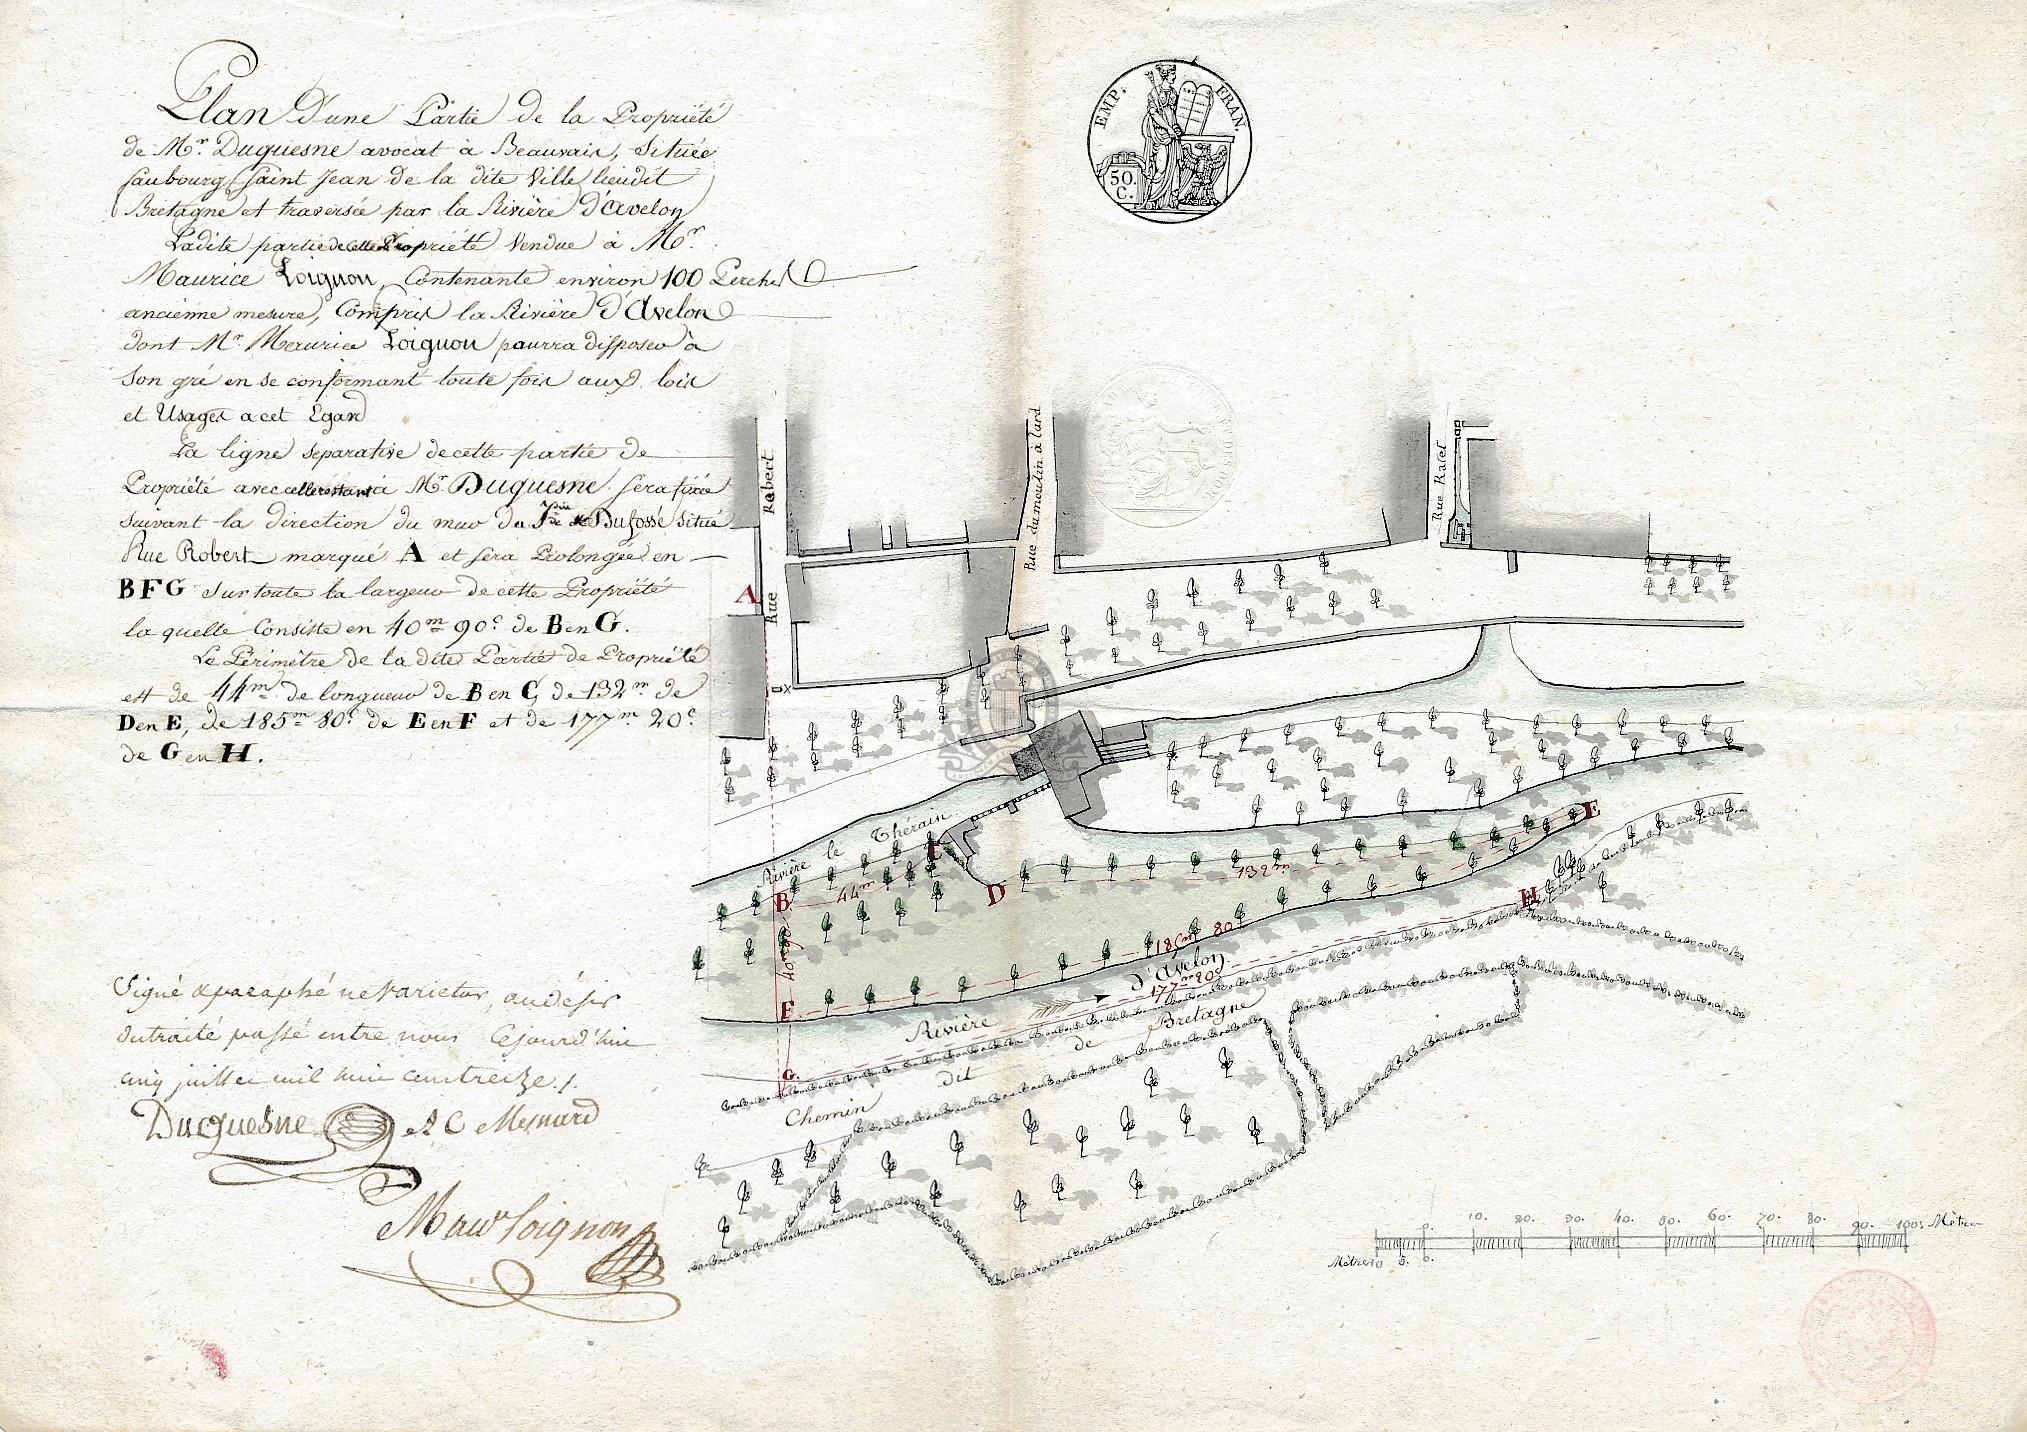 Plan D'une Partie De la Propriété
de Mr. Duquesne avocat à Beauvais, Située
faubourg Saint Jean de la dite Ville lieudit
Bretagne et traversée par la Rivière D'Avelon
Ladite partie de cette Propriété Vendue à Mr.
Maurice Loignon, Contenante environ 100 Perches
ancienne mesure, Compris la Rivière D'Avelon
dont Mr. Maurice Loignon pourra disposer à
Son gré en se conformant toute fois aux lois
et Usages a cet Egard
La ligne separative de cette partie de
Propriété avec celle restant à Mr. Duquesne Sera fixée
suivant la direction du mur du Dufossé Situé
Rue Robert marqué A et sera Prolongée en
BFG sur toute la largeur de cette Propriété
la quelle Consiste en 40m 90c de B en G.
Le Périmètre de la dite Partie de Propriété
est de 44m de longueur de B en C, de 132m de
D en E, de 185m 80c de E en F et de 177m 20c
de G en H.
Signé & paraphé ne varietur, au désir
du traité passé entre nous Cejourd'hui
cinq juillet mil huit cent treize ./.
Duquesne A C Mesnard
Maur Loignon
EMP. FRAN.
50.
C.
Rue Rabert
Rue du moulin à lard
Rue Ratel
A
X
Rivière le Thérain
B
44m
C
D
132m
E
40m 90c
F
185m 80
H
D'Avelon
177m 20c
Rivière
G.
Chemin dit de Bretagne
0. 10. 20. 30. 40. 50. 60. 70. 80. 90. 100. Mètres
Mètres 10 5. 0.